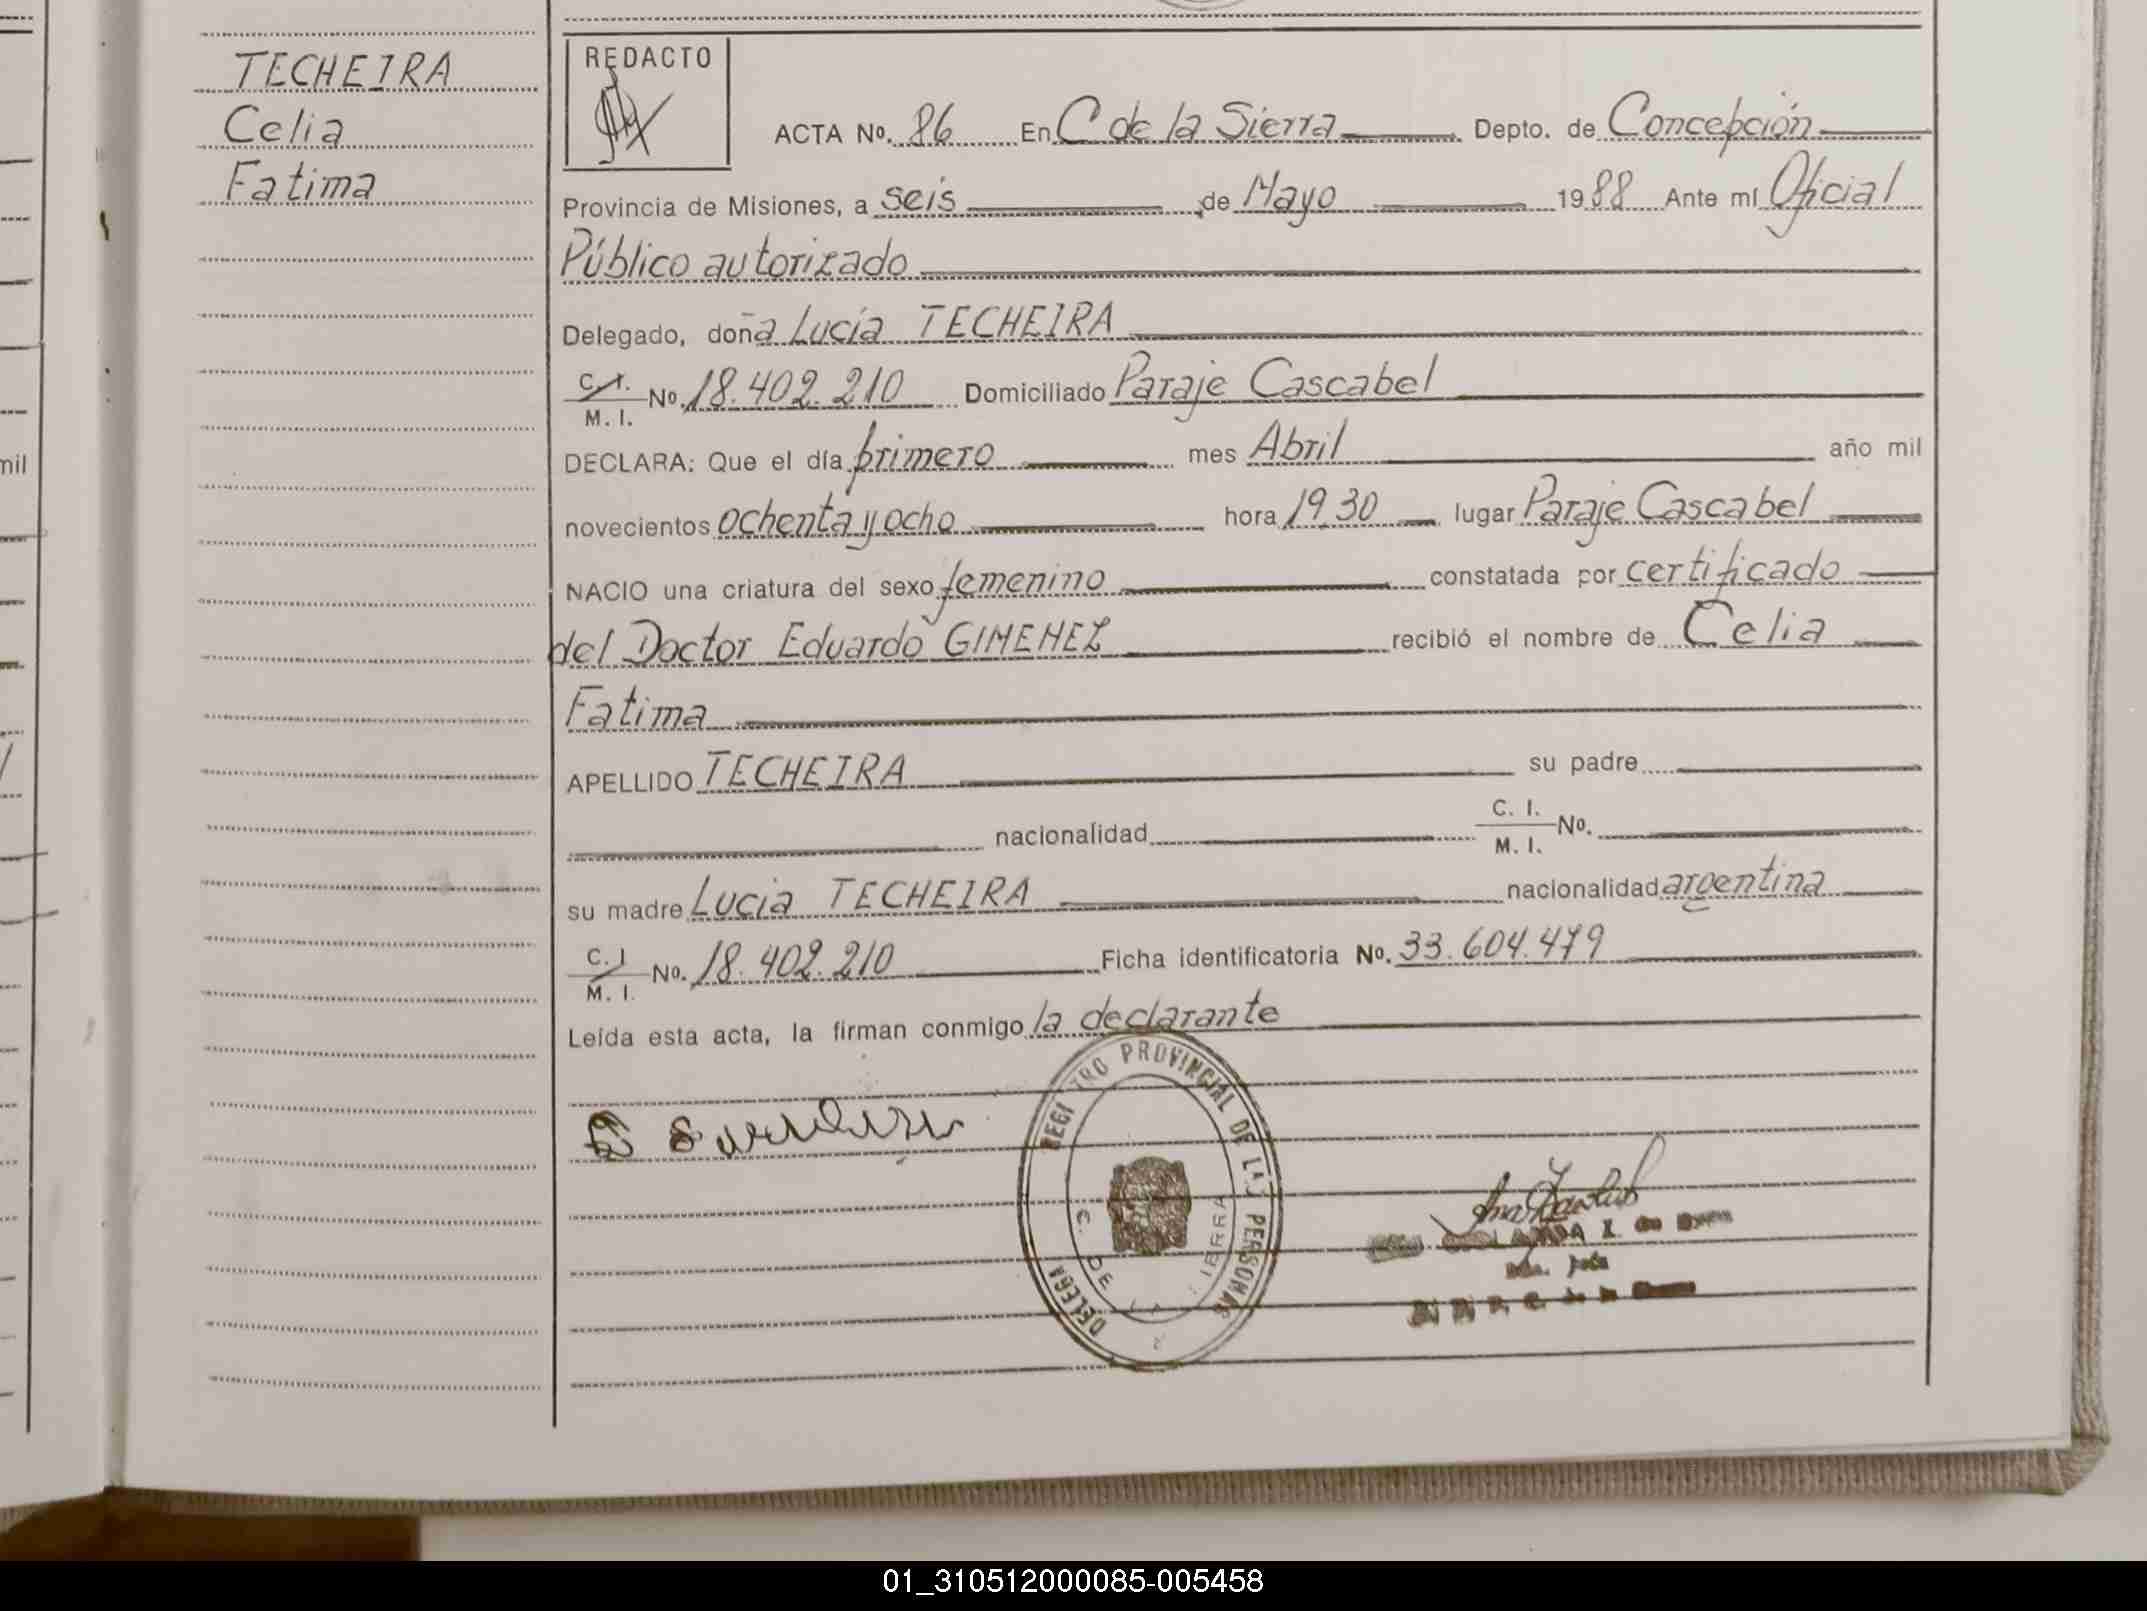 TECHEIRA
Celia
Fatima
REDACTO
ACTA Nº. 86 En C de la Sierra Depto. de Concepción
Provincia de Misiones, a seis de Mayo 1988 Ante mí Oficial
Público autorizado
Delegado, doña Lucía TECHEIRA
C. I. / M. I. Nº. 18.402.210 Domiciliado Paraje Cascabel
DECLARA: Que el día primero mes Abril año mil
novecientos ochenta y ocho hora 19,30 lugar Paraje Cascabel
NACIO una criatura del sexo femenino constatada por certificado
del Doctor Eduardo GIMENEZ recibió el nombre de Celia
Fatima
APELLIDO TECHEIRA su padre
nacionalidad C. I. / M. I. Nº.
su madre Lucia TECHEIRA nacionalidad argentina
C. I / M. I. Nº. 18.402.210 Ficha identificatoria Nº. 33.604.479
Leída esta acta, la firman conmigo la declarante
REGI TRO PROVINCIAL DE LAS PERSONAS
C. DE LA IERRA
DELEGA
mil
01_310512000085-005458